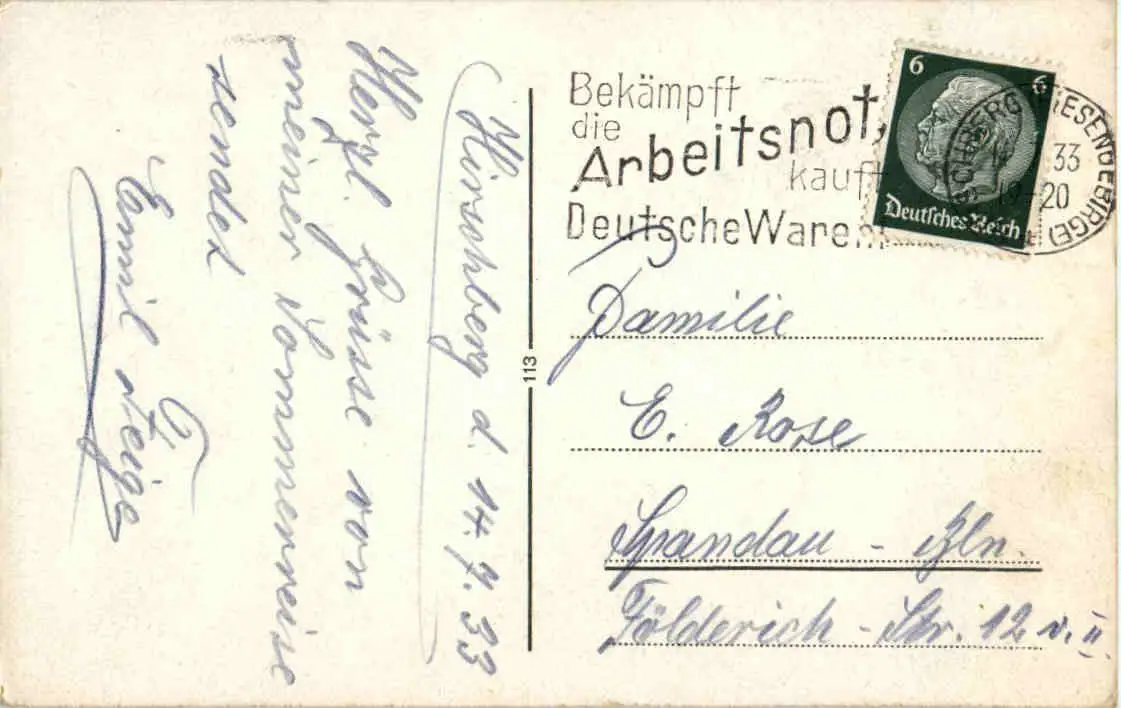 Hirschberg d. 14.7.33
Herzl. Grüsse von
meiner Sommerreise
sendet
Emil Feige
113
Bekämpft
die
Arbeitsnot,
kauft
Deutsche Waren
6 6
Deutsches Reich
33
19-20
Familie
E. Rose
Spandau - Bln.
Földerich - Str. 12 v. II